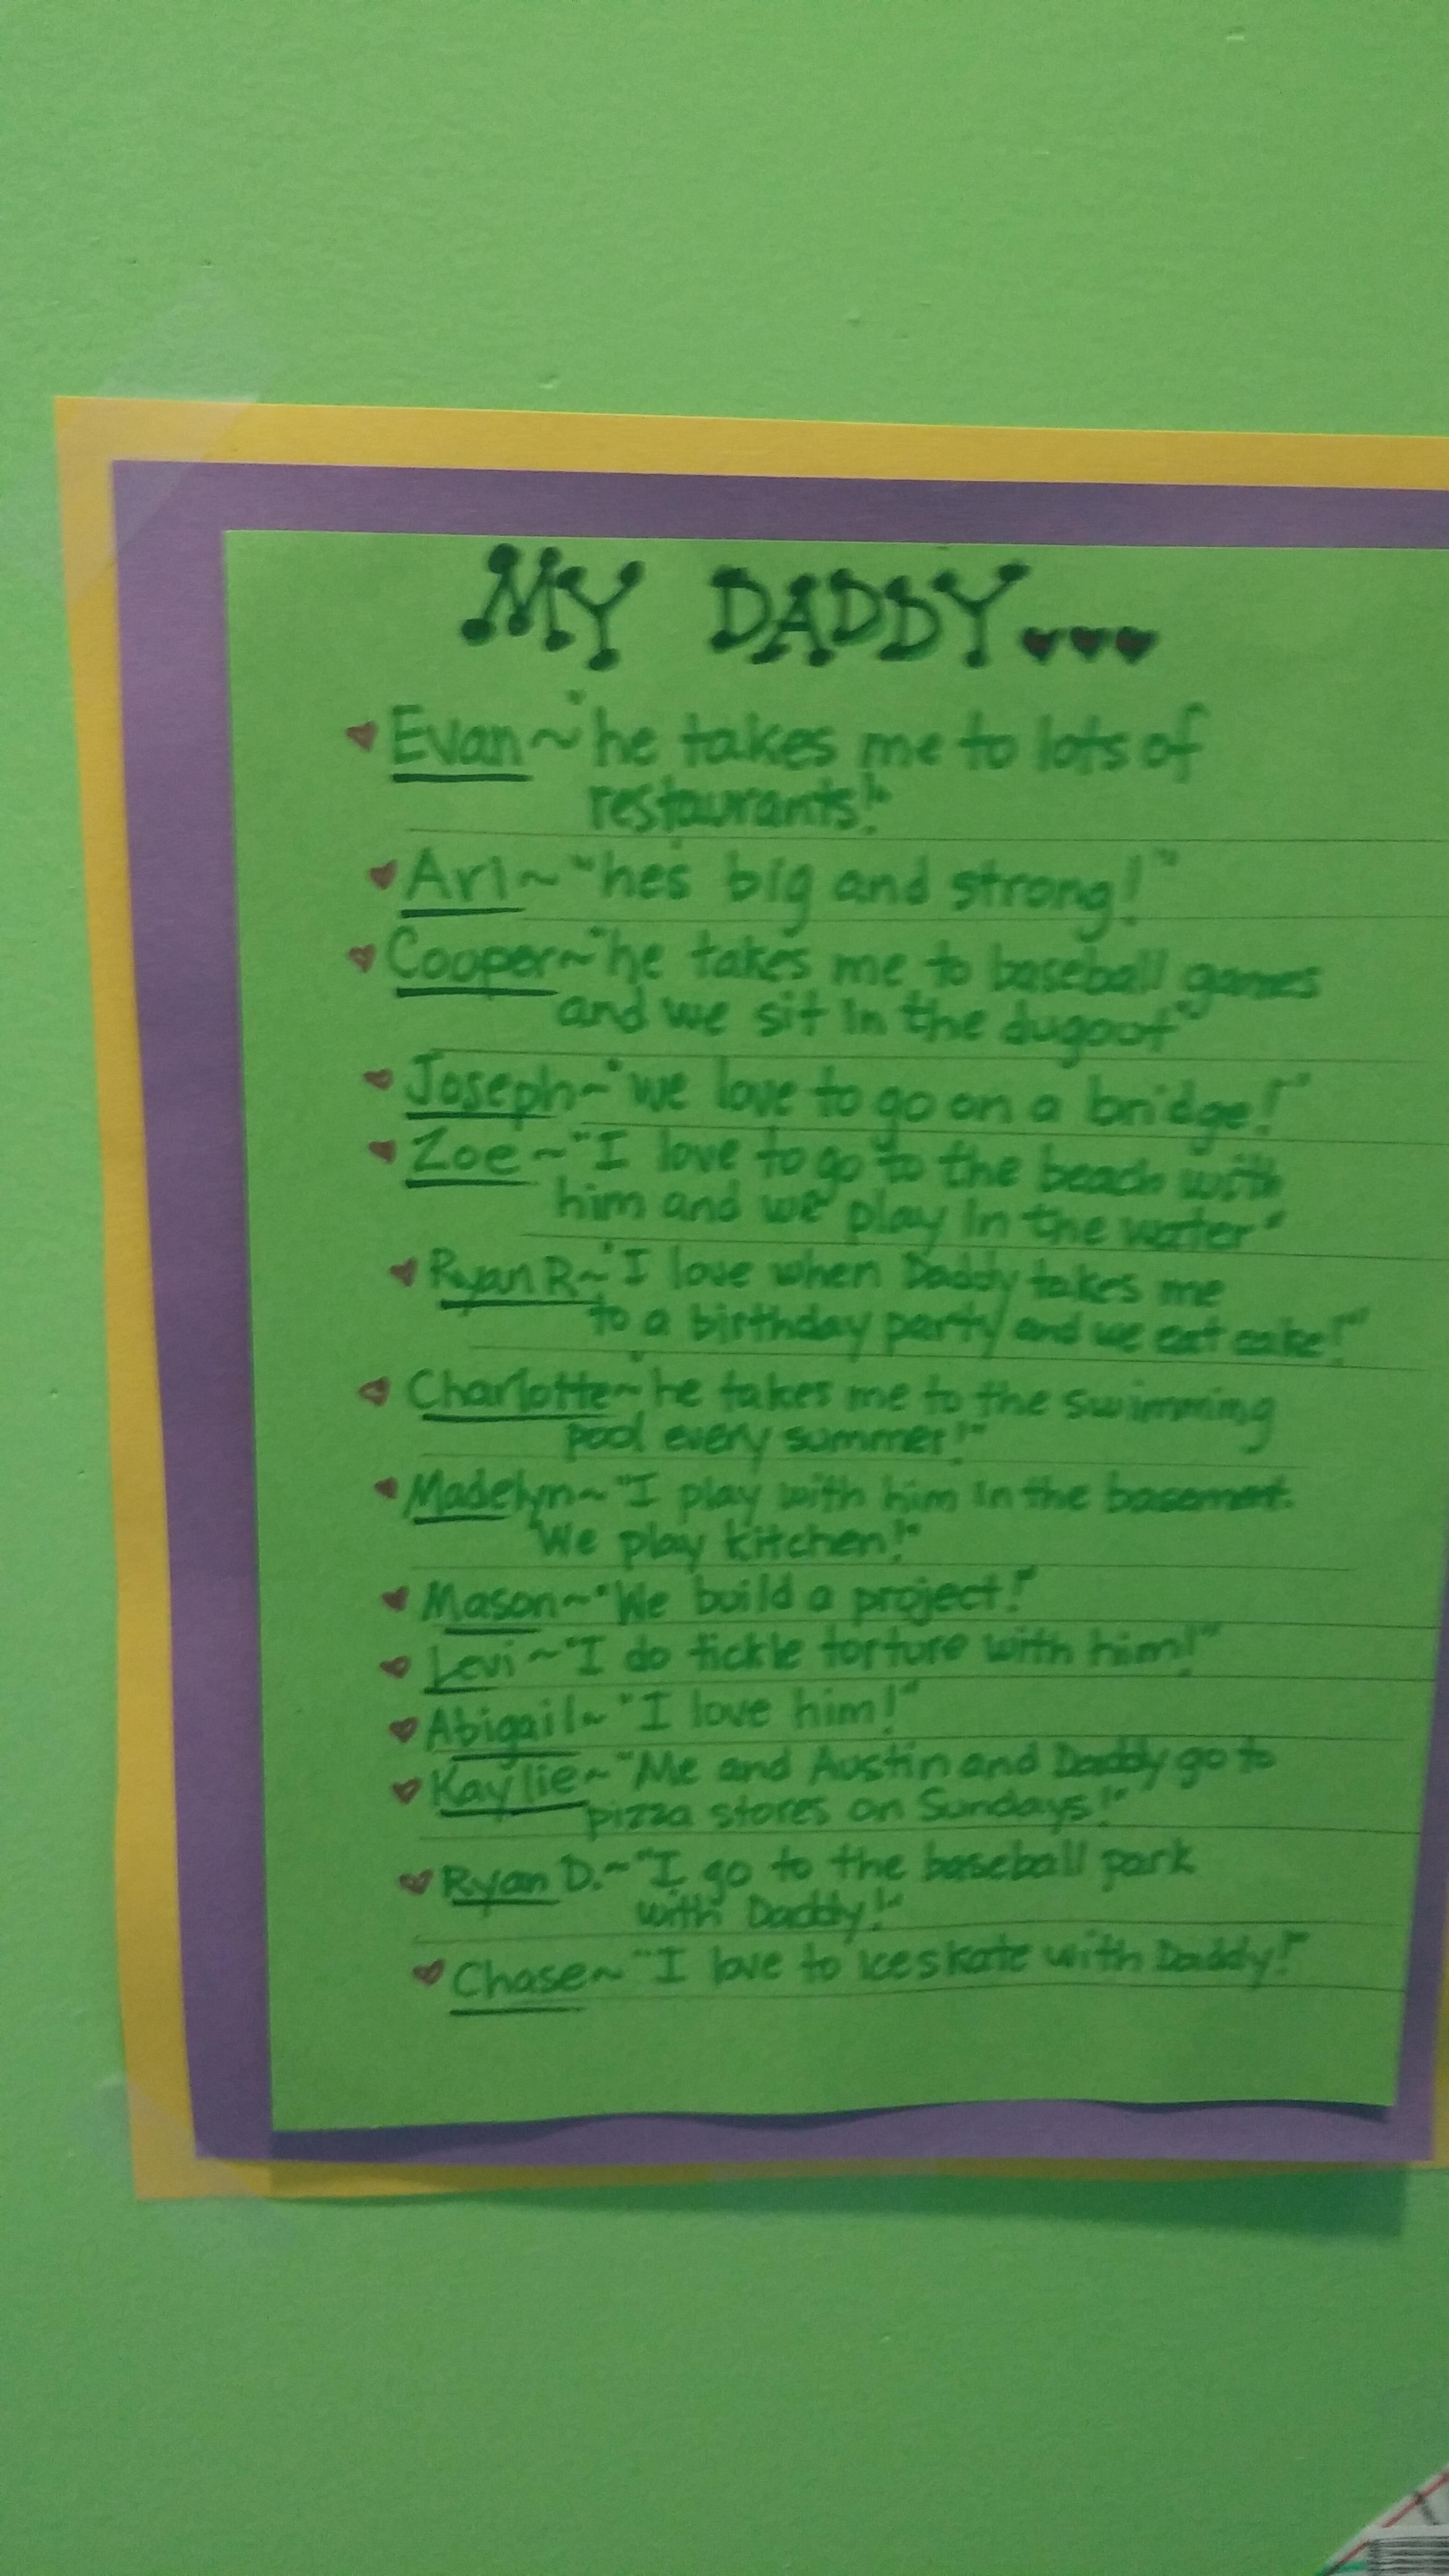 MY DADDY...
Evan~"he takes me to lots of
restaurants!"
Ari~"he's big and strong!"
Cooper~"he takes me to baseball games
and we sit in the dugout"
Joseph~"we love to go on a bridge!"
Zoe~"I love to go to the beach with
him and we play in the water"
Ryan R~"I love when Daddy takes me
to a birthday party and we eat cake!"
Charlotte~"he takes me to the swimming
pool every summer!"
Madelyn~"I play with him in the basement.
We play kitchen!"
Mason~"We build a project!"
Levi~"I do tickle torture with him!"
Abigail~"I love him!"
Kaylie~"Me and Austin and Daddy go to
pizza stores on Sundays!"
Ryan D.~"I go to the baseball park
with Daddy!"
Chase~"I love to iceskate with Daddy!"